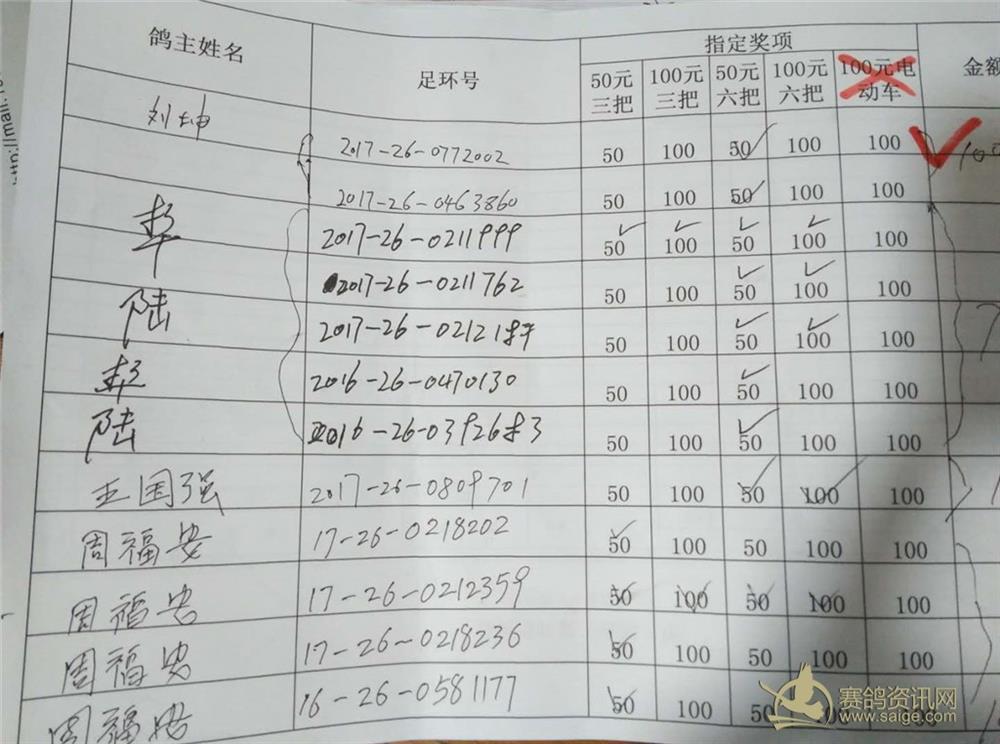 鸽主姓名 足环号 指定奖项 金额
50元三把 100元三把 50元六把 100元六把 100元电动车
刘坤 2017-26-0772002 50 100 50 100 100
2017-26-0463860 50 100 50 100 100
2017-26-0211999 50 100 50 100 100
2017-26-0211762 50 100 50 100 100
陆 2017-26-02121 50 100 50 100 100
2016-26-0470130 50 100 50 100 100
陆 2016-26-03926 50 100 50 100 100
王国强 2017-26-0809701 50 100 50 100 100
周福安 17-26-0218202 50 100 50 100 100
周福安 17-26-0212359 50 100 50 100 100
周福安 17-26-0218236 50 100 50 100 100
周福安 16-26-0581177 50 100 50 100 100
赛鸽资讯网
www.saige.com